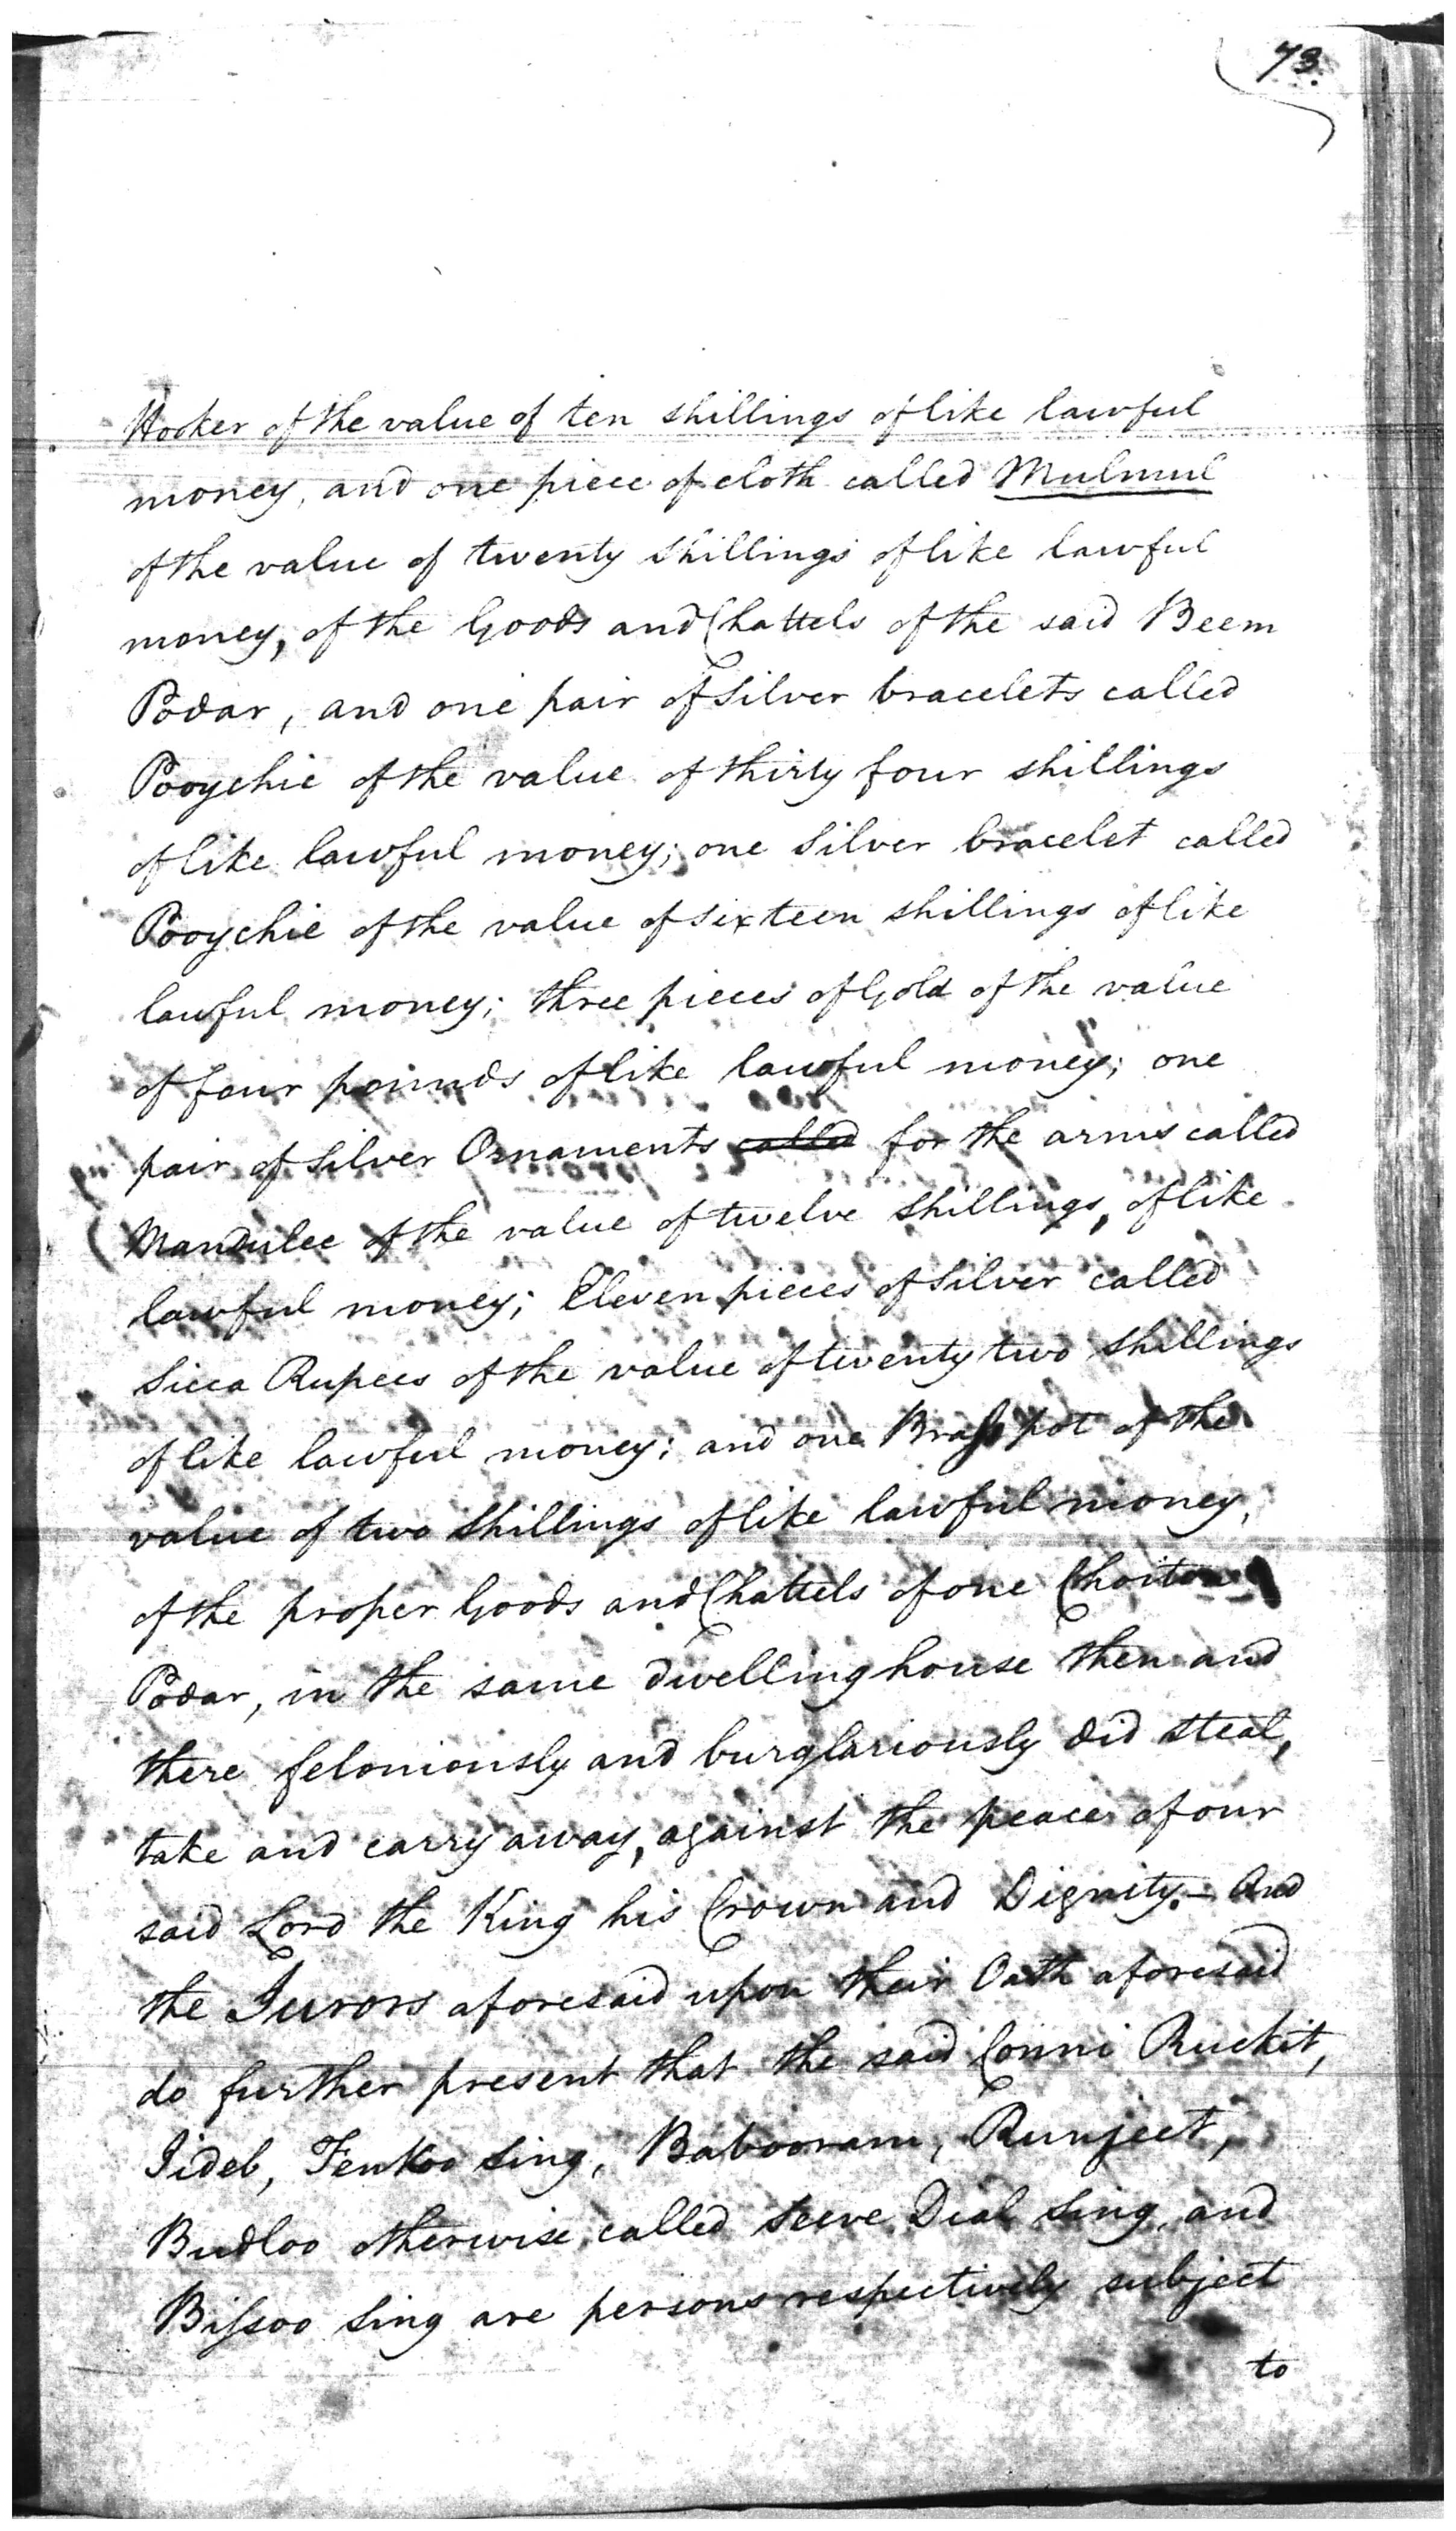 73.
Hooker of the value of ten shillings of like lawful
money, and one piece of cloth called Mulmul
of the value of twenty shillings of like lawful
money, of the Goods and Chattels of the said Beem
Podar, and one pair of Silver bracelets called
Pooychie of the value of thirty four shillings
of like lawful money; one Silver bracelet called
Pooychie of the value of sixteen shillings of like
lawful money; three pieces of Gold of the value
of four pounds of like lawful money; one
pair of Silver Ornaments called for the arms called
Mandulee of the value of twelve Shillings, of like
lawful money; Eleven pieces of Silver called
Sicca Rupees of the value of twenty two Shillings
of like lawful money; and one Brass pot of the
value of two Shillings of like lawful money,
of the proper Goods and Chattels of one
Podar, in the same dwelling house then and
there feloniously and burglariously did steal,
take and carry away, against the peace of our
said Lord the King his Crown and Dignity. – And
the Jurors aforesaid upon their Oath aforesaid
do further present that the said Conni Ruckit,
Jideb, Tenkoo Sing, Babooram, Runjeet,
Budloo otherwise called Seeve Dial Sing, and
Bissoo Sing are persons respectively subject
to